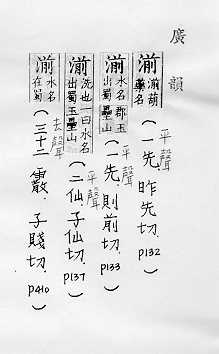 廣韻
湔 湔葫藥名 (一先,昨先切. P132) 平聲
湔 水名出蜀郡玉壘山 (一先,則前切. P133) 平聲
湔 洗也一曰水名出蜀玉壘山 (二仙,子仙切. P137) 平聲
湔 水名在蜀 (三十二霰,子賤切. P410) 去聲